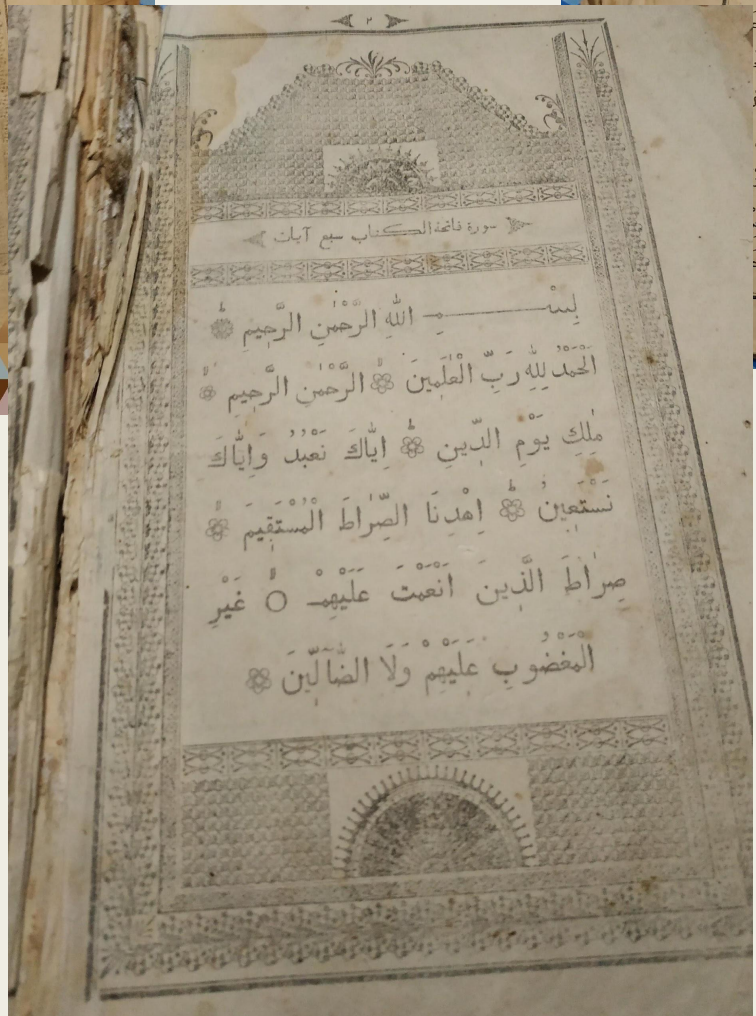 ٢
سورة فاتحة الكتاب سبع آيات
بِسْمِ اللهِ الرَّحْمٰنِ الرَّحِيمِ
اَلْحَمْدُ لِلهِ رَبِّ الْعٰلَمِينَ الرَّحْمٰنِ الرَّحِيمِ
مٰلِكِ يَوْمِ الدِّينِ اِيَّاكَ نَعْبُدُ وَاِيَّاكَ
نَسْتَعِينُ اِهْدِنَا الصِّرَاطَ الْمُسْتَقِيمَ
صِرَاطَ الَّذِينَ اَنْعَمْتَ عَلَيْهِمْ غَيْرِ
الْمَغْضُوبِ عَلَيْهِمْ وَلَا الضَّآلِّينَ